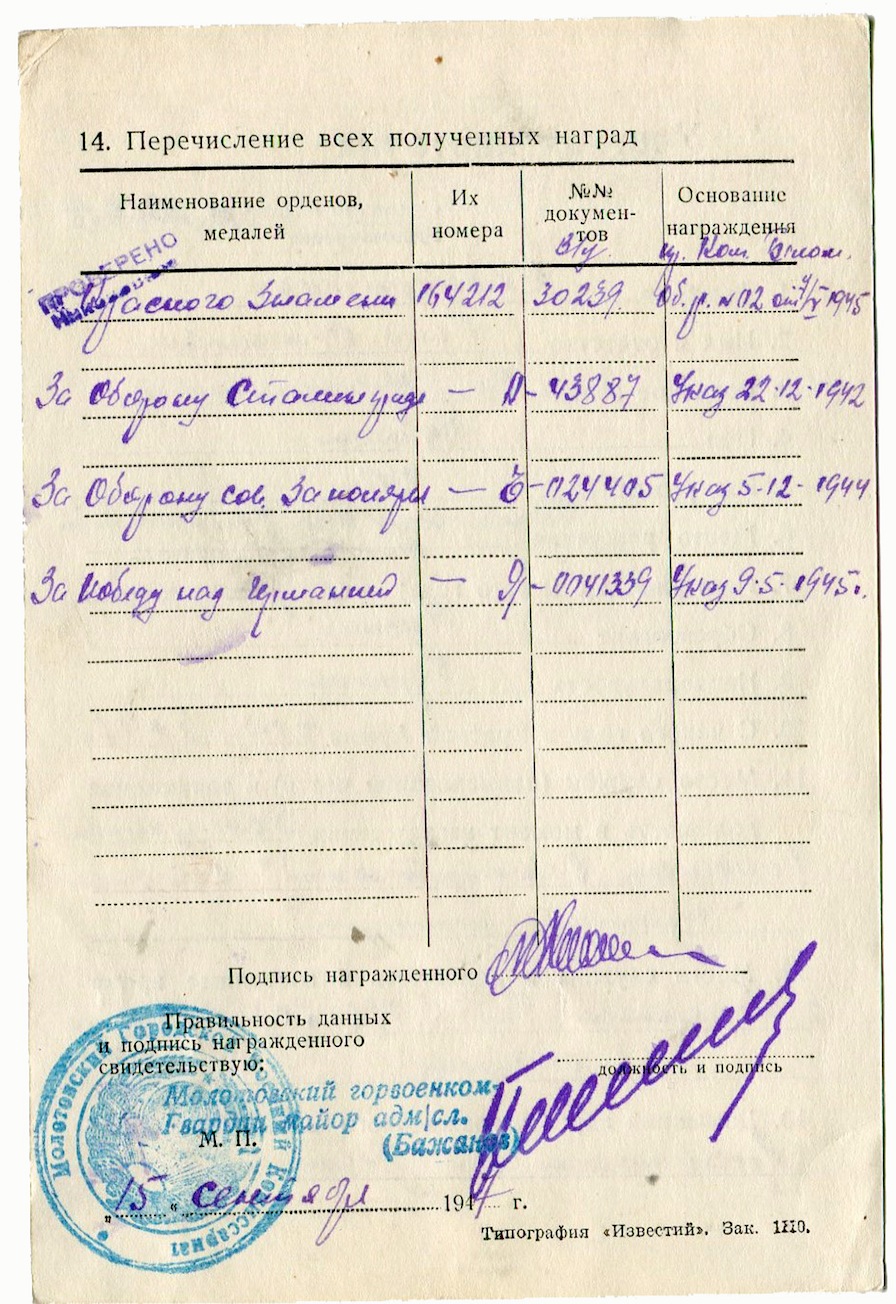 14. Перечисление всех полученных наград
Наименование орденов, медалей
Их номера
№№ документов
Основание награждения
ПРОВЕРЕНО
Красного Знамени 164212 30239 1945
За Оборону Сталинграда — А-43887 Указ 22.12.1942
За Оборону сов. Заполярья — 024405 Указ 5.12.1944
За Победу над Германией — Я-0041339 Указ 9.5.1945г.
Подпись награжденного
Правильность данных
и подпись награжденного
свидетельствую:
должность и подпись
Молотовский Городской Военный Комиссариат
Молотовский горвоенком-
Гвардии майор адм|сл.
М. П.
(Бажанов)
„15“ сентября 1947 г.
Типография «Известий». Зак. 1110.